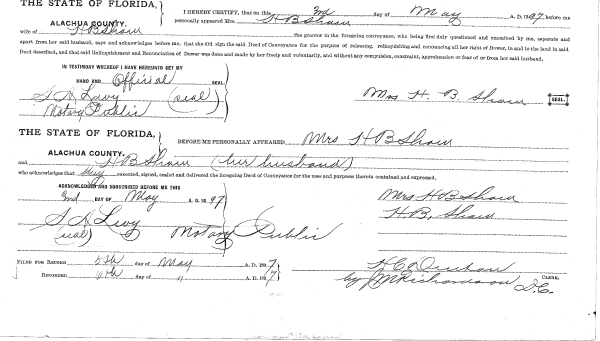 THE STATE OF FLORIDA, I HEREBY CERTIFY, that on this 3rd day of May A. D. 1897 before me
ALACHUA COUNTY. personally appeared Mrs. H B Shaw
wife of H B Shaw the grantor in the foregoing conveyance, who being first duly questioned and examined by me, separate and
apart from her said husband, says and acknowledges before me, that she did sign the said Deed of Conveyance for the purpose of releasing, relinquishing and renouncing all her right of Dower, in and to the land in said
Deed described, and that said Relinquishment and Renunciation of Dower was done and made by her freely and voluntarily, and without any compulsion, constraint, apprehension or fear of or from her said husband.
IN TESTIMONY WHEREOF I HAVE HEREUNTO SET MY
HAND AND Official SEAL.
S A Levy (seal) Mrs H. B. Shaw SEAL.
Notary Public
THE STATE OF FLORIDA, BEFORE ME PERSONALLY APPEARED Mrs H B Shaw
ALACHUA COUNTY.
and H B Shaw (her husband)
who acknowledges that they executed, signed, sealed and delivered the foregoing Deed of Conveyance for the uses and purposes therein contained and expressed.
ACKNOWLEDGED AND SUBSCRIBED BEFORE ME THIS
3rd DAY OF May A. D. 1897 Mrs H B Shaw
H B, Shaw
S A Levy
(seal) Notary Public
FILED FOR RECORD 5th day of May A. D. 1897
RECORDED 6th day of " A. D. 1897 CLERK,
by Richardson D. C.